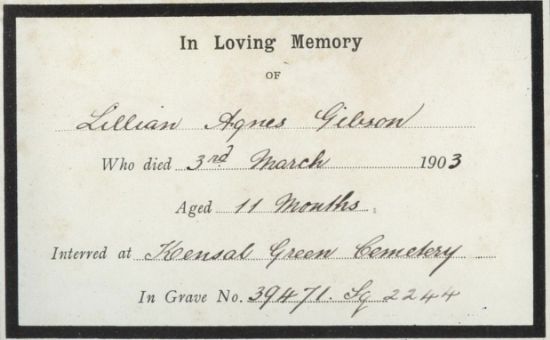 In Loving Memory
OF
Lillian Agnes Gibson
Who died 3rd March 1903
Aged 11 Months
Interred at Kensal Green Cemetery
In Grave No. 39471. Sq 2244